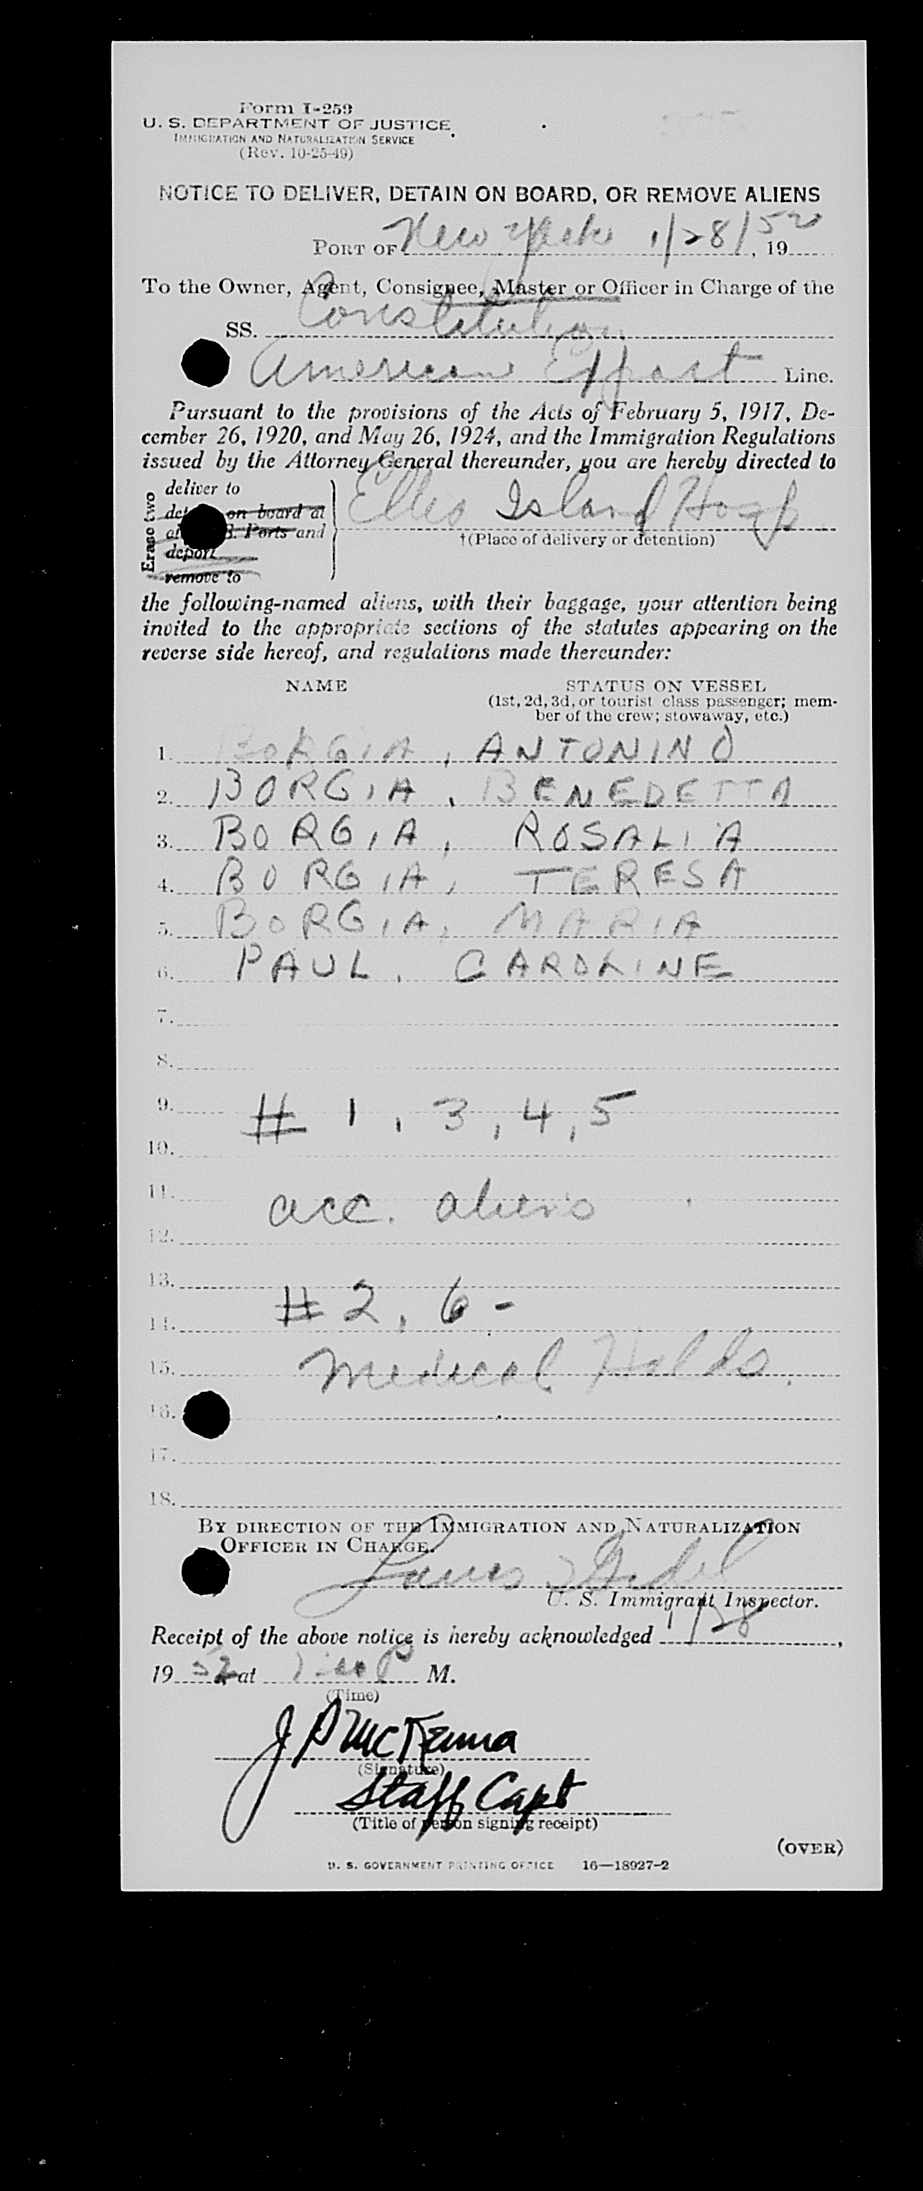 Form I-259
U. S. DEPARTMENT OF JUSTICE
IMMIGRATION AND NATURALIZATION SERVICE
(Rev. 10-25-49)
NOTICE TO DELIVER, DETAIN ON BOARD, OR REMOVE ALIENS
PORT OF New York 1/28/52, 19
To the Owner, Agent, Consignee, Master or Officer in Charge of the
SS. Constitution
American Export Line.
Pursuant to the provisions of the Acts of February 5, 1917, De-
cember 26, 1920, and May 26, 1924, and the Immigration Regulations
issued by the Attorney General thereunder, you are hereby directed to
Erase two
deliver to
on board at
Ports and
deport
remove to
Ellis Island Hosp
†(Place of delivery or detention)
the following-named aliens, with their baggage, your attention being
invited to the appropriate sections of the statutes appearing on the
reverse side hereof, and regulations made thereunder:
NAME STATUS ON VESSEL
(1st, 2d, 3d, or tourist class passenger; mem-
ber of the crew; stowaway, etc.)
1. BORGIA, ANTONINO
2. BORGIA, BENEDETTA
3. BORGIA, ROSALIA
4. BORGIA, TERESA
5. BORGIA, MARIA
6. PAUL, CAROLINE
7.
8.
9. # 1, 3, 4, 5
10.
11. acc. aliens
12.
13.
14. # 2, 6 -
15. Medical Holds.
16.
17.
18.
BY DIRECTION OF THE IMMIGRATION AND NATURALIZATION
OFFICER IN CHARGE.
U. S. Immigrant Inspector.
Receipt of the above notice is hereby acknowledged 1/28,
19 52 at P M.
(Time)
J P McKenna
(Signature)
Staff Capt
(Title of person signing receipt)
(OVER)
U. S. GOVERNMENT PRINTING OFFICE 16—18927-2